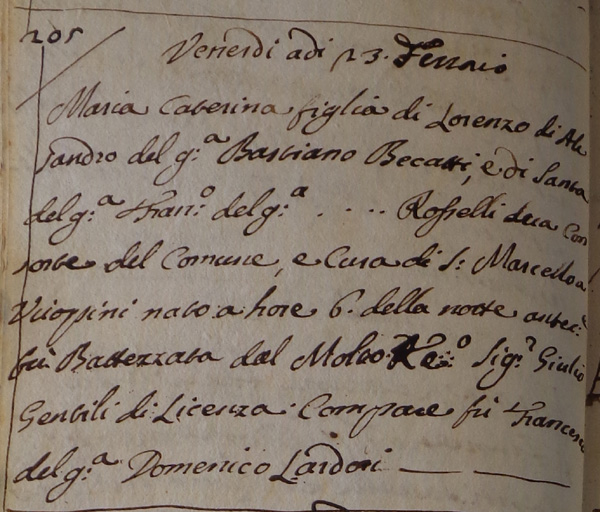 205
Venerdi adi 23. Febraio
Maria Caterina figlia di Lorenzo di Ale
sandro del q.ᵃ Bastiano Becatti, e di Santa
del q.ᵃ Fran.º del q.ᵃ . . . . Rosselli sua Con
sorte del Comune, e Cura di S: Marcello a
nato a hore 6. della notte antec.
fù Battezzata dal Molto Re.º Sig.ʳ Giulio
Gentili di Licenza. Compare fù Francesco
del q.ᵃ Domenico Lardori